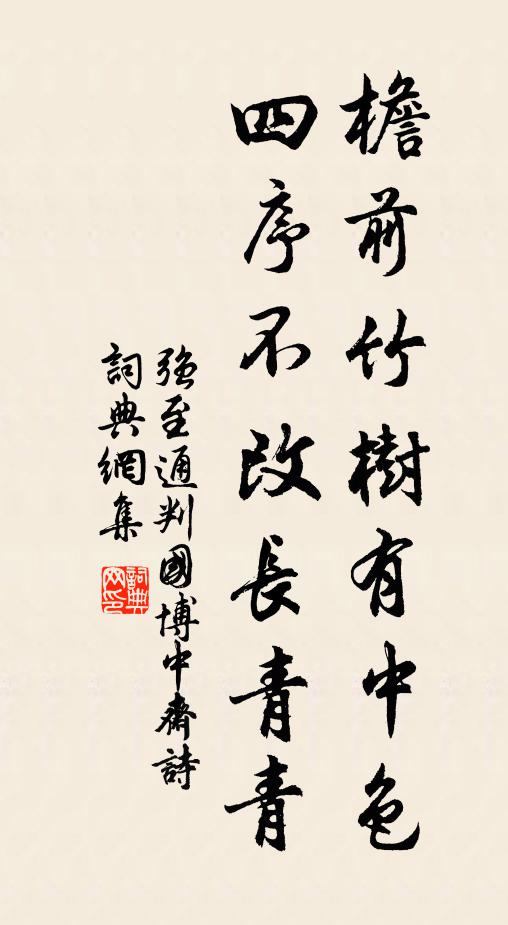 檐前竹樹有中色
四序不改長青青
強至通判國博中齋詩
詞典網集
詞典網印